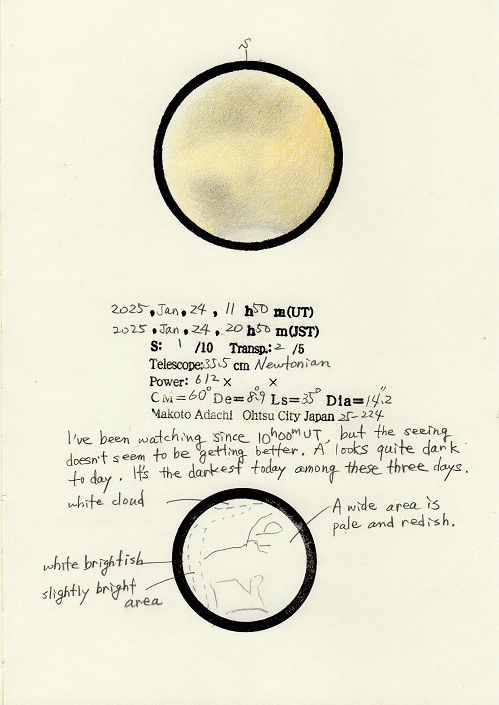 S
2025, Jan, 24, 11 h50 m(UT)
2025, Jan, 24, 20 h50 m(JST)
S: 1 /10 Transp.: 2 /5
Telescope:35.5 cm Newtonian
Power: 612 × ×
CM=60° De=8.°9 Ls=35° Dia=14."2
Makoto Adachi Ohtsu City Japan 25-224
I've been watching since 10h00m UT, but the seeing
doesn't seem to be getting better. A looks quite dark
today. It's the darkest today among these three days.
white cloud
A wide area is
pale and redish.
white brightish
slightly bright
area